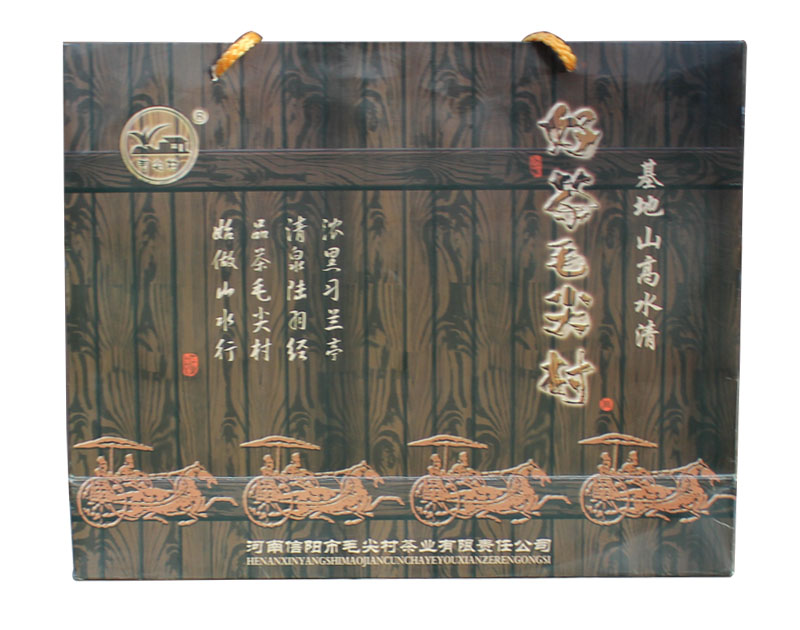 基地山高水清
好茶毛尖村
浓墨习兰亭
清泉陆羽经
品茶毛尖村
始做山水行
毛尖村
®
河南信阳市毛尖村茶业有限责任公司
HENANXINYANGSHIMAOJIANCUNCHAYEYOUXIANZERENGONGSI